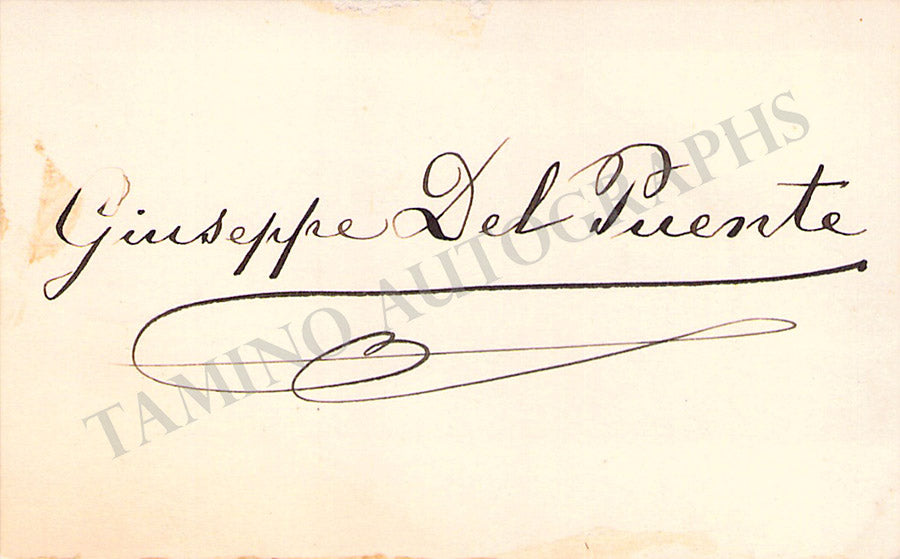 Giuseppe Del Puente
TAMINO AUTOGRAPHS